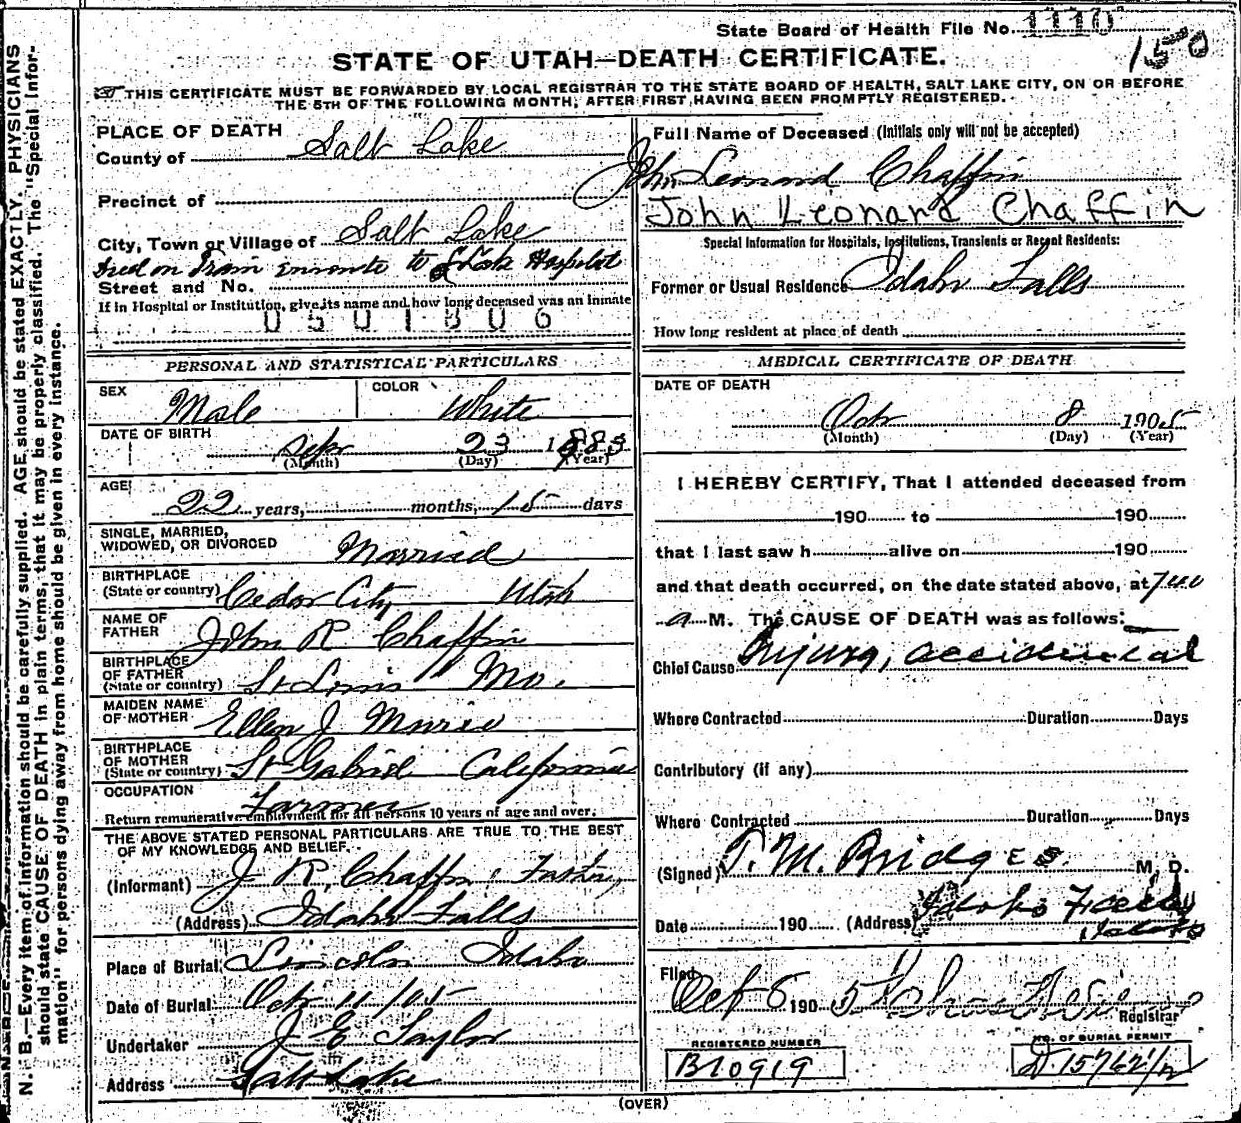 State Board of Health File No. 1110
150
STATE OF UTAH—DEATH CERTIFICATE.
THIS CERTIFICATE MUST BE FORWARDED BY LOCAL REGISTRAR TO THE STATE BOARD OF HEALTH, SALT LAKE CITY, ON OR BEFORE
THE 5TH OF THE FOLLOWING MONTH, AFTER FIRST HAVING BEEN PROMPTLY REGISTERED.
N. B.—Every item of information should be carefully supplied. AGE should be stated EXACTLY. PHYSICIANS
should state CAUSE OF DEATH in plain terms, that it may be properly classified. The "Special Infor-
mation" for persons dying away from home should be given in every instance.
PLACE OF DEATH
County of Salt Lake
Precinct of
City, Town or Village of Salt Lake
Died on Train enroute to S Lake Hospital
Street and No.
If in Hospital or Institution, give its name and how long deceased was an inmate
0501806
PERSONAL AND STATISTICAL PARTICULARS
SEX Male COLOR White
DATE OF BIRTH
Sep 23 1883
(Month) (Day) (Year)
AGE
22 years, months, 15 days
SINGLE, MARRIED,
WIDOWED, OR DIVORCED Married
BIRTHPLACE
(State or country) Cedar City Utah
NAME OF
FATHER John R Chaffin
BIRTHPLACE
OF FATHER
(State or country) St Louis Mo.
MAIDEN NAME
OF MOTHER Ellen J
BIRTHPLACE
OF MOTHER
(State or country) St Gabriel California
OCCUPATION
Farmer
Return remunerative employment for all persons 10 years of age and over.
THE ABOVE STATED PERSONAL PARTICULARS ARE TRUE TO THE BEST
OF MY KNOWLEDGE AND BELIEF.
(Informant) J R, Chaffin, Father,
(Address) Idaho Falls
Place of Burial Lincoln Idaho
Date of Burial Oct 11 /05
Undertaker J E Taylor
Address Salt Lake
Full Name of Deceased (Initials only will not be accepted)
John Leonard Chaffin
John Leonard Chaffin
Special Information for Hospitals, Institutions, Transients or Recent Residents:
Former or Usual Residence Idaho Falls
How long resident at place of death
MEDICAL CERTIFICATE OF DEATH
DATE OF DEATH
Oct 8 1905
(Month) (Day) (Year)
I HEREBY CERTIFY, That I attended deceased from
190 to 190
that I last saw h alive on 190
and that death occurred, on the date stated above, at 7 00
a M. The CAUSE OF DEATH was as follows:
Chief Cause Injury, accidental
Where Contracted Duration Days
Contributory (if any)
Where Contracted Duration Days
(Signed) T. M. Bridges M. D.
Date 190 (Address) Idaho Falls
Idaho
Filed
Oct 190 5
Registrar
REGISTERED NUMBER
B10919
NO. OF BURIAL PERMIT
D.15762 1/2
(OVER)